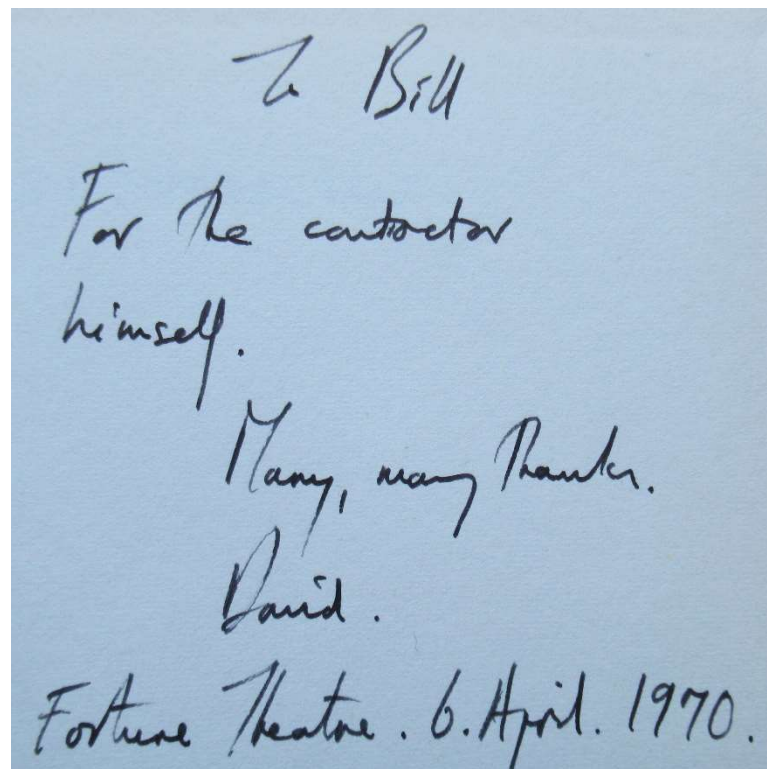 To Bill
For the contractor
himself.
Many, many thanks.
David.
Fortune Theatre. 6. April. 1970.